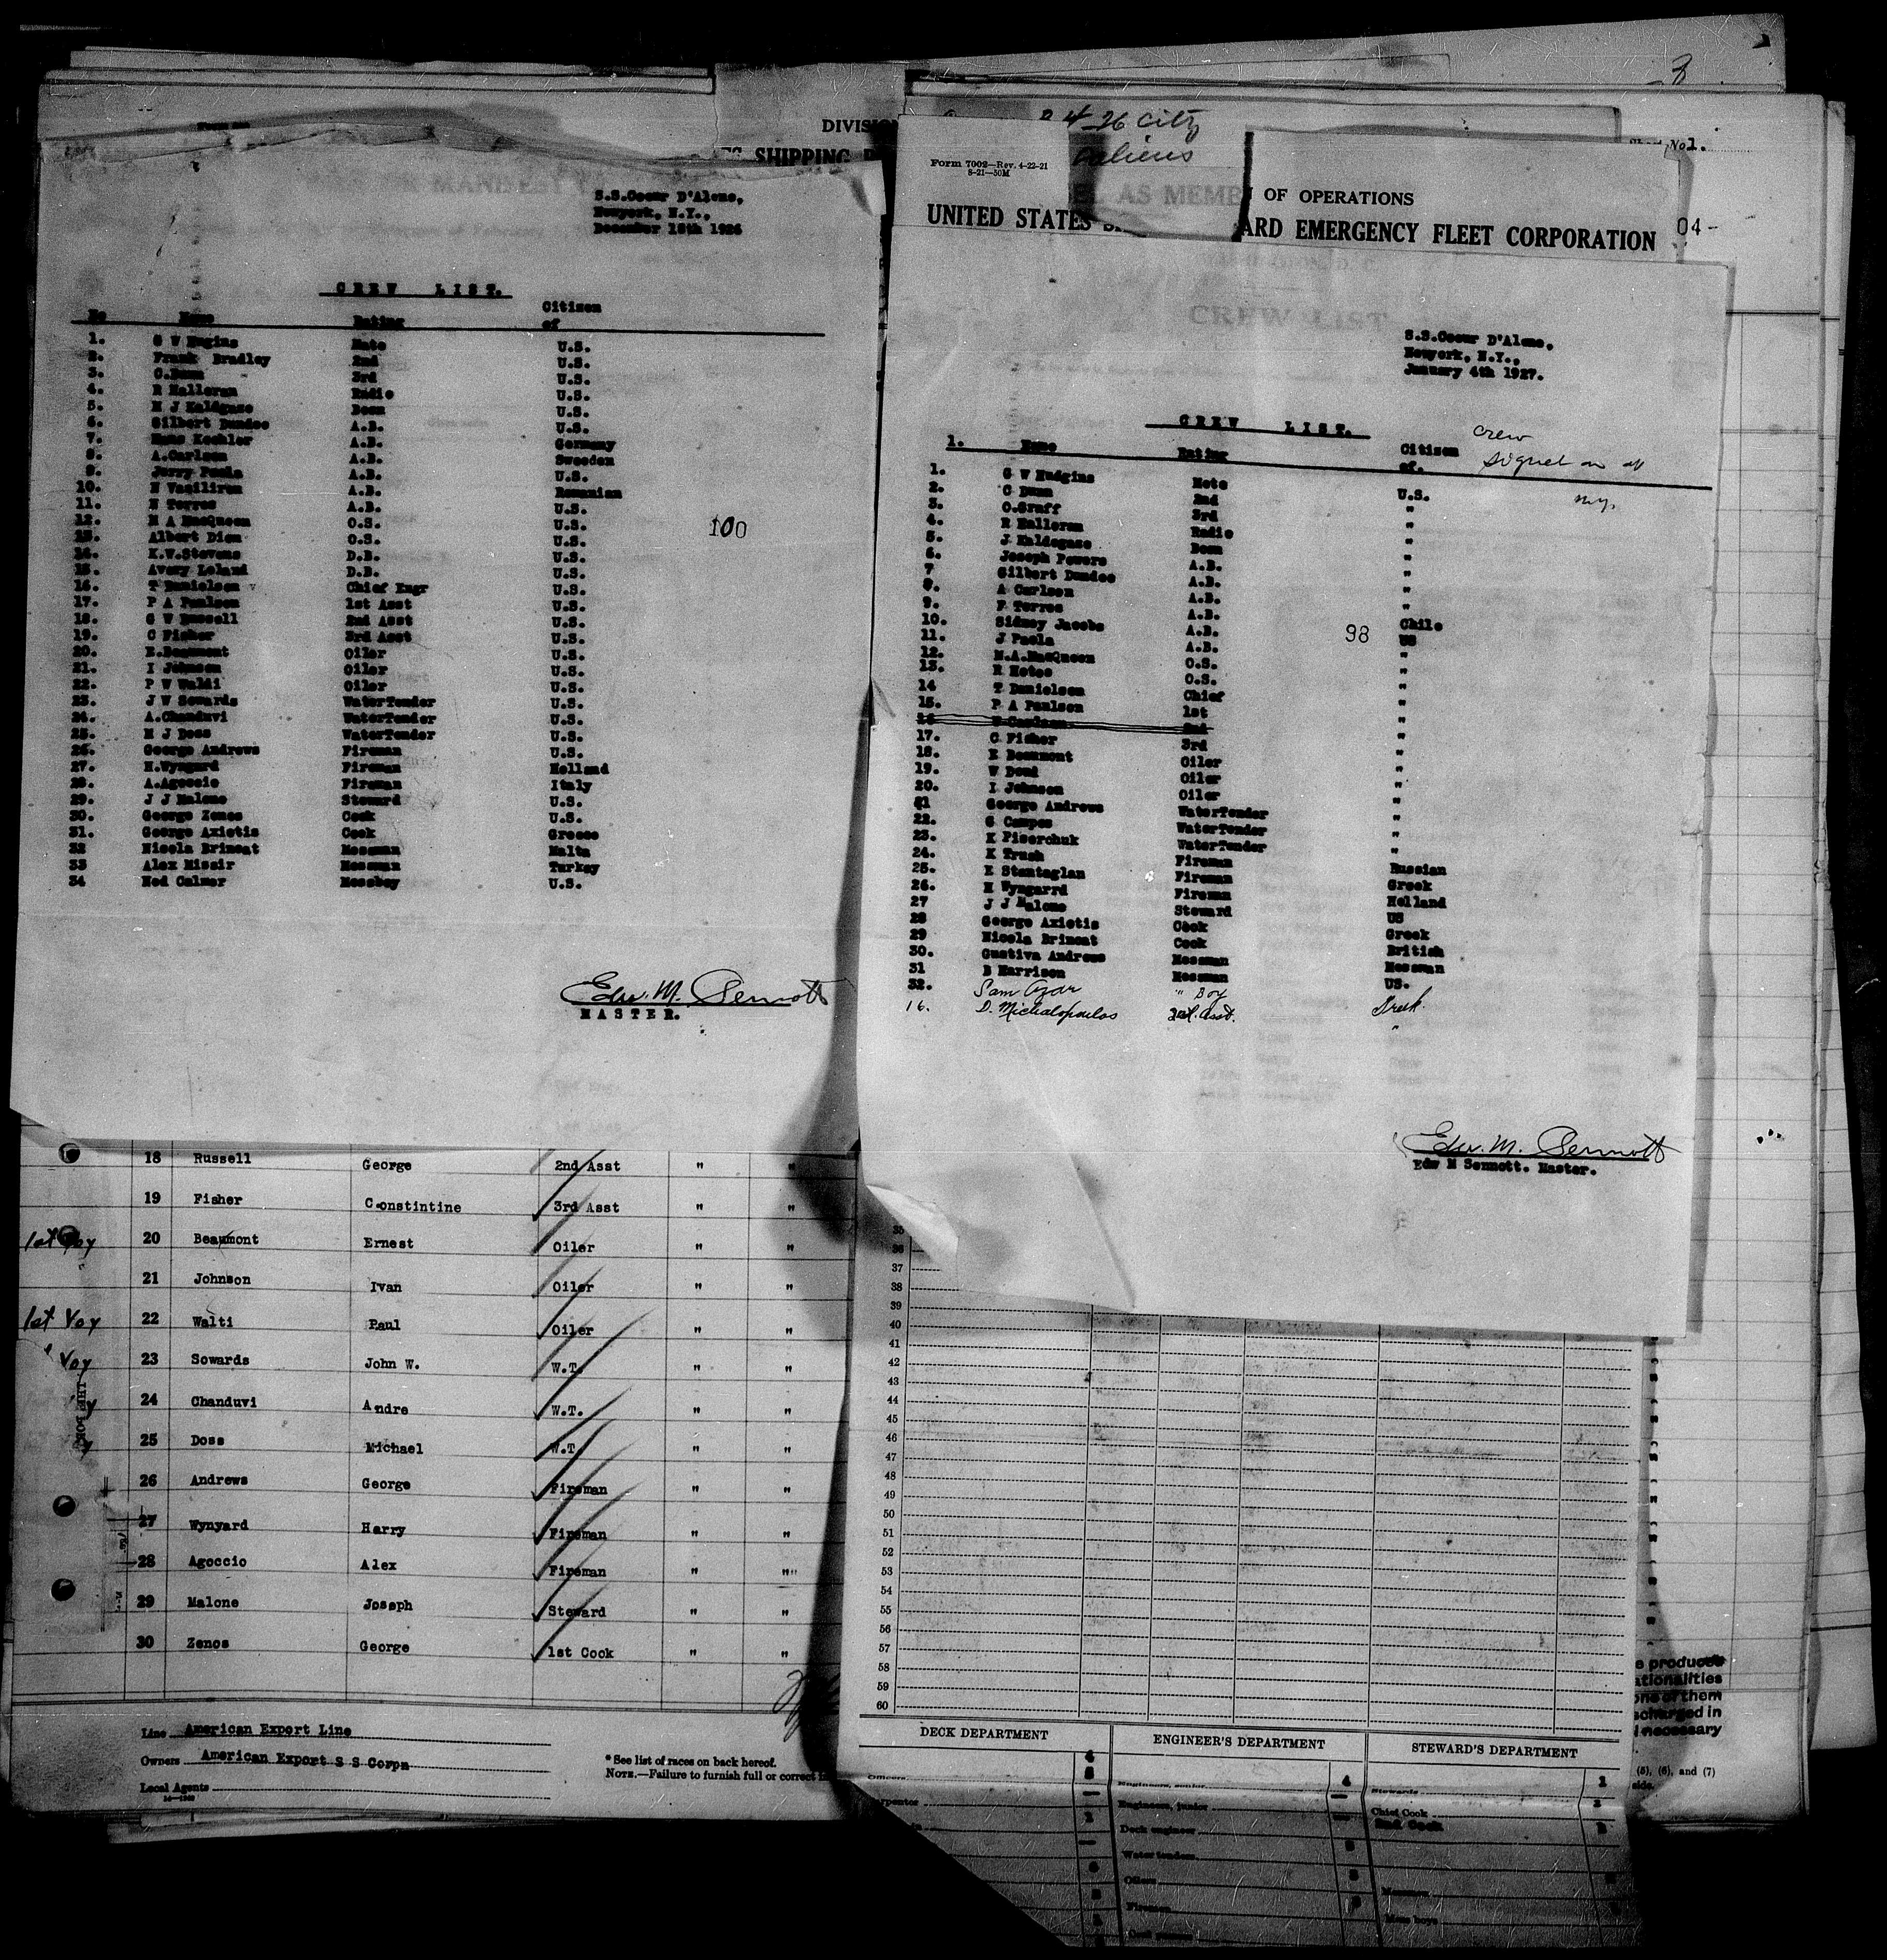 3
DIVISION
SHIPPING
S.S.Coeur D'Alene,
Newyork, N.Y.,
December 18th 1926
CREW LIST.
No Name Rating Citizen of
1. G W Hugins Mate U.S.
2. Frank Bradley 2nd U.S.
3. C.Dunn 3rd U.S.
4. R Halloran Radio U.S.
5. M J Kaldgase Bosn U.S.
6. Gilbert Dundee A.B. U.S.
7. Hans Koehler A.B. Germany
8. A.Carlsen A.B. Sweden
9. Jerry Paula A.B. U.S.
10. N Vasilirum A.B. Romanian
11. N Torres A.B. U.S.
12. M A MacQueen O.S. U.S.
13. Albert Dion O.S. U.S.
14. K.W.Stevens D.B. U.S.
15. Avery Leland D.B. U.S.
16. T Danielson Chief Engr U.S.
17. P A Paulson 1st Asst U.S.
18. G W Russell 2nd Asst U.S.
19. C Fisher 3rd Asst U.S.
20. E.Beaumont Oiler U.S.
21. I Johnson Oiler U.S.
22. P W Waldi Oiler U.S.
23. J W Sowards WaterTender U.S.
24. A.Chanduvi WaterTender U.S.
25. M J Doss WaterTender U.S.
26. George Andrews Fireman U.S.
27. H.Wyngard Fireman Holland
28. A.Agoccio Fireman Italy
29. J J Malone Steward U.S.
30. George Zenos Cook U.S.
31. George Axiotis Cook Greece
32 Nicola Brincat Messman Malta
33 Alex Missir Messman Turkey
34 Ned Calmer Messboy U.S.
100
Edw. M. Sennott
MASTER.
18 Russell George 2nd Asst " "
19 Fisher Constintine 3rd Asst " "
1st Voy 20 Beaumont Ernest Oiler " "
21 Johnson Ivan Oiler " "
1st Voy 22 Walti Paul Oiler " "
Voy 23 Sowards John W. W.T. " "
24 Chanduvi Andre W.T. " "
25 Doss Michael W.T. " "
26 Andrews George Fireman " "
27 Wynyard Harry Fireman " "
28 Agoccio Alex Fireman " "
29 Malone Joseph Steward " "
30 Zenos George 1st Cook " "
Line American Export Line
Owners American Export S S Corpn
Local Agents
* See list of races on back hereof.
NOTE.—Failure to furnish full or correct
4-26 City
aliens
Form 7002—Rev. 4-22-21
8-21—50M
EL AS MEMB
N OF OPERATIONS
UNITED STATES S ARD EMERGENCY FLEET CORPORATION
No 1.
04-
CREW LIST
S.S.Coeur D'Alene,
Newyork, N.Y.,
January 4th 1927.
CREW LIST.
crew
signed on at
N.Y.
1. Name Rating Citizen of.
1. G W Hudgins Mate U.S.
2. C Dunn 2nd "
3. O.Graff 3rd "
4. R Halloran Radio "
5. J Kaldegase Bosn "
6. Joseph Powers A.B. "
7 Gilbert Dundee A.B. "
8. A Carlsen A.B. "
9. F Torres A.B. Chile
10. Sidney Jacobs A.B. US
11. J Paula A.B. "
12. M.A.MacQueen O.S. "
13. R Hotes O.S. "
14 T Danielson Chief "
15. P A Paulsen 1st "
16 Carlson 2nd "
17. C Fisher 3rd "
18. E Beaumont Oiler "
19. W Dowd Oiler "
20. I Johnson Oiler "
21 George Andrews WaterTender "
22. G Campos WaterTender "
23. K Piserchuk WaterTender "
24. K Trush Fireman Russian
25. E Stantaglan Fireman Greek
26. H Wyngarrd Fireman Holland
27 J J Malone Steward US
28 George Axiotis Cook Greek
29 Nicola Brincat Cook British
30. Gustiva Andrews Messman Messman
31 B Harrison Messman US.
32. Sam Azar " Boy Greek.
16. D. Michalopoulos 2nd. Asst. "
98
Edw. M. Sennott
Edw M Sennott. Master.
35
36
37
38
39
40
41
42
43
44
45
46
47
48
49
50
51
52
53
54
55
56
57
58
59
60
DECK DEPARTMENT ENGINEER'S DEPARTMENT STEWARD'S DEPARTMENT
Engineers, junior
Deck engineer
Water tenders
Oilers
Firemen
Stewards
Chief Cook
2nd Cook
Messmen
Mess boys
produces
ationalities
one of them
scharged in
necessary
(5), (6), and (7)
side.